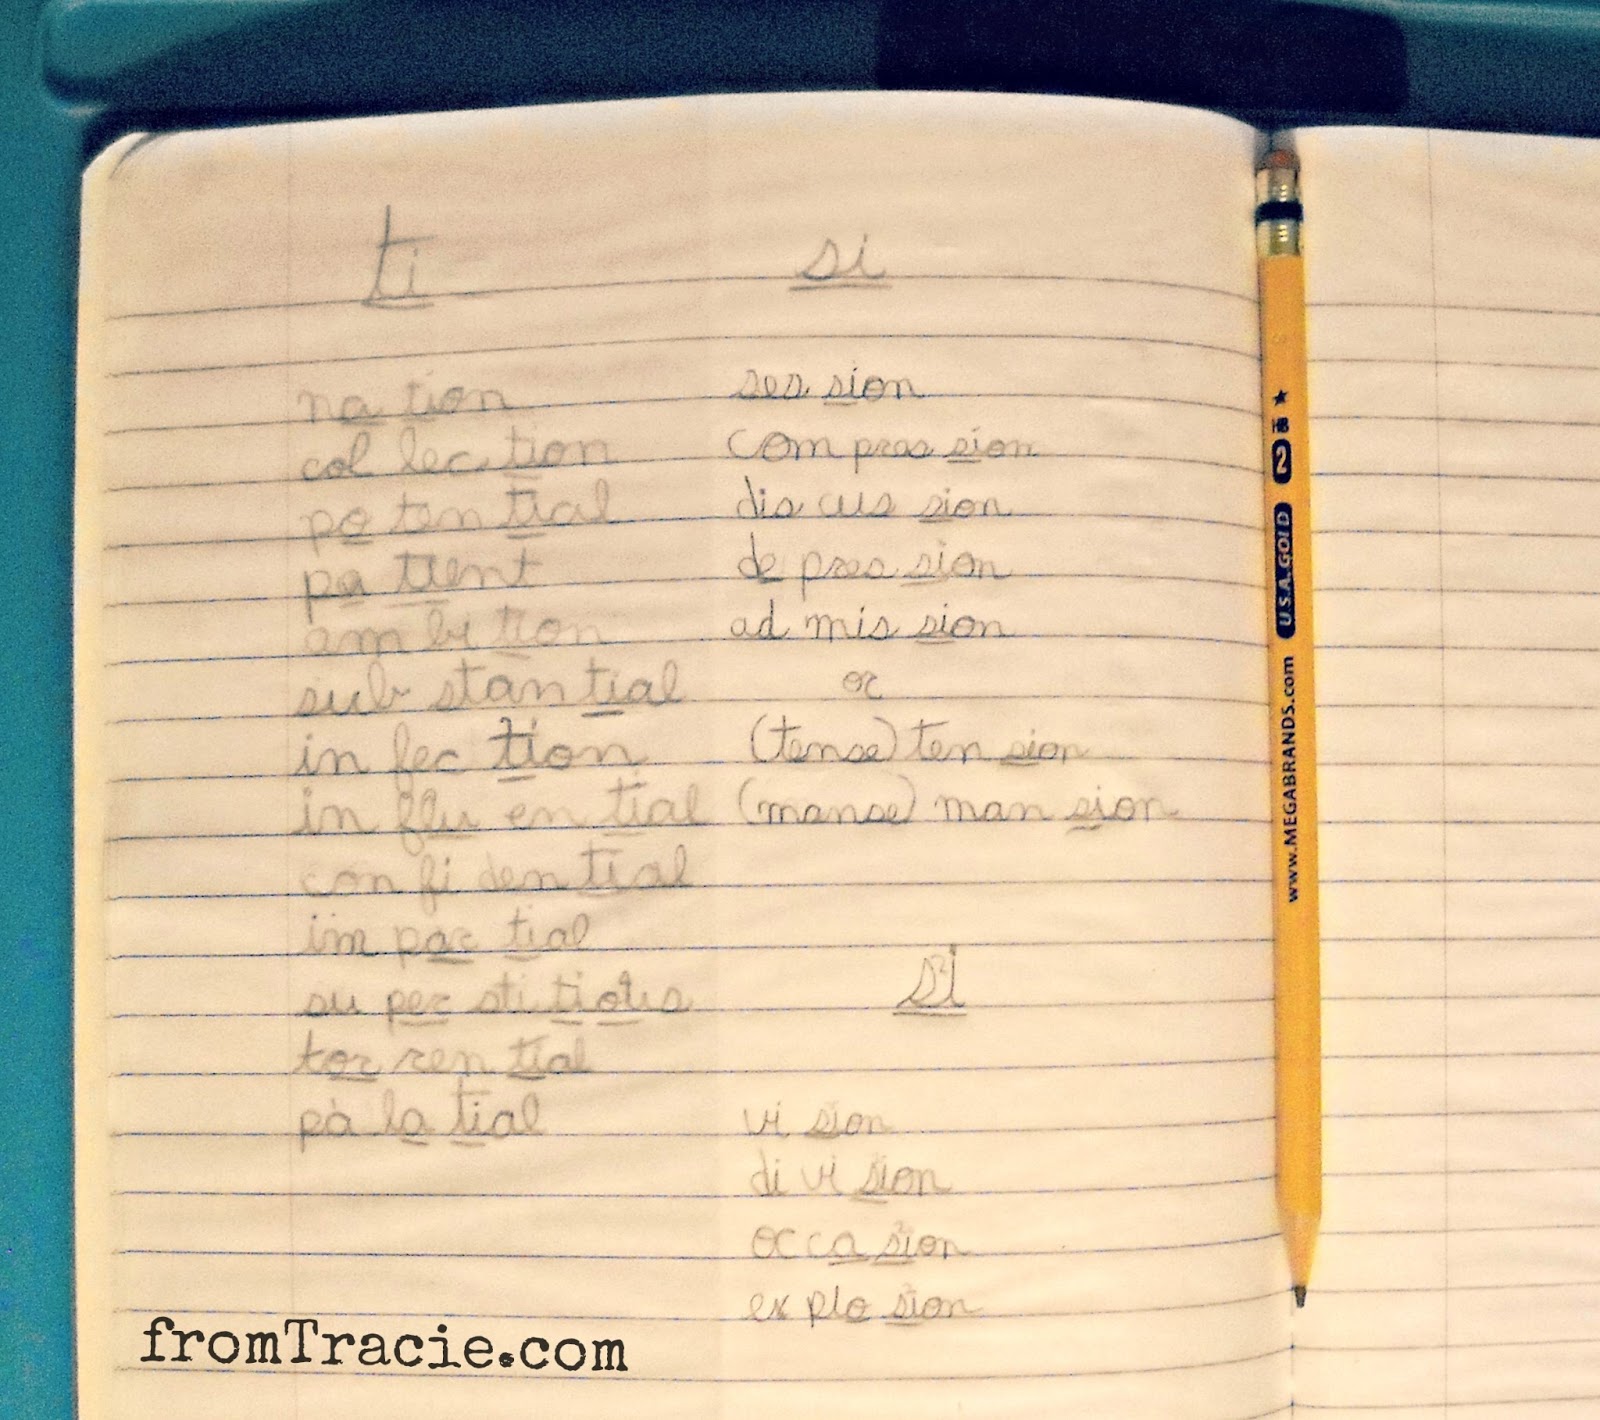 ti
na tion
col lec tion
po ten tial
pa tient
am bi tion
sub stan tial
in fec tion
in flu en tial
con fi den tial
im par tial
su per sti tious
tor ren tial
pa la tial
si
ses sion
com pres sion
dis cus sion
de pres sion
ad mis sion
or
(tense) ten sion
(manse) man sion
si
vi sion
di vi sion
oc ca sion
ex plo sion
www.MEGABRANDS.com U.S.A. GOLD 2 HB ★
fromTracie.com